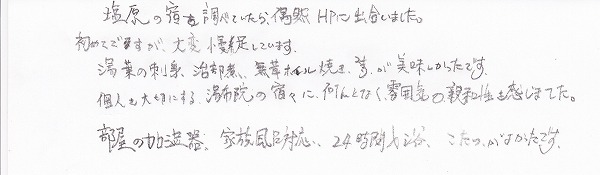 塩原の宿を調べていたら、偶然HPに出合いました。
初めてですが、大変満足しています。
湯葉の刺身、治部煮、ホイル焼き、等、が美味しかったです。
個人を大切にする、湯布院の宿々に、何んとなく、雰囲気の親和性を感じました。
部屋の加湿器、家族風呂対応、24時間入浴、こたつ、がよかったです。